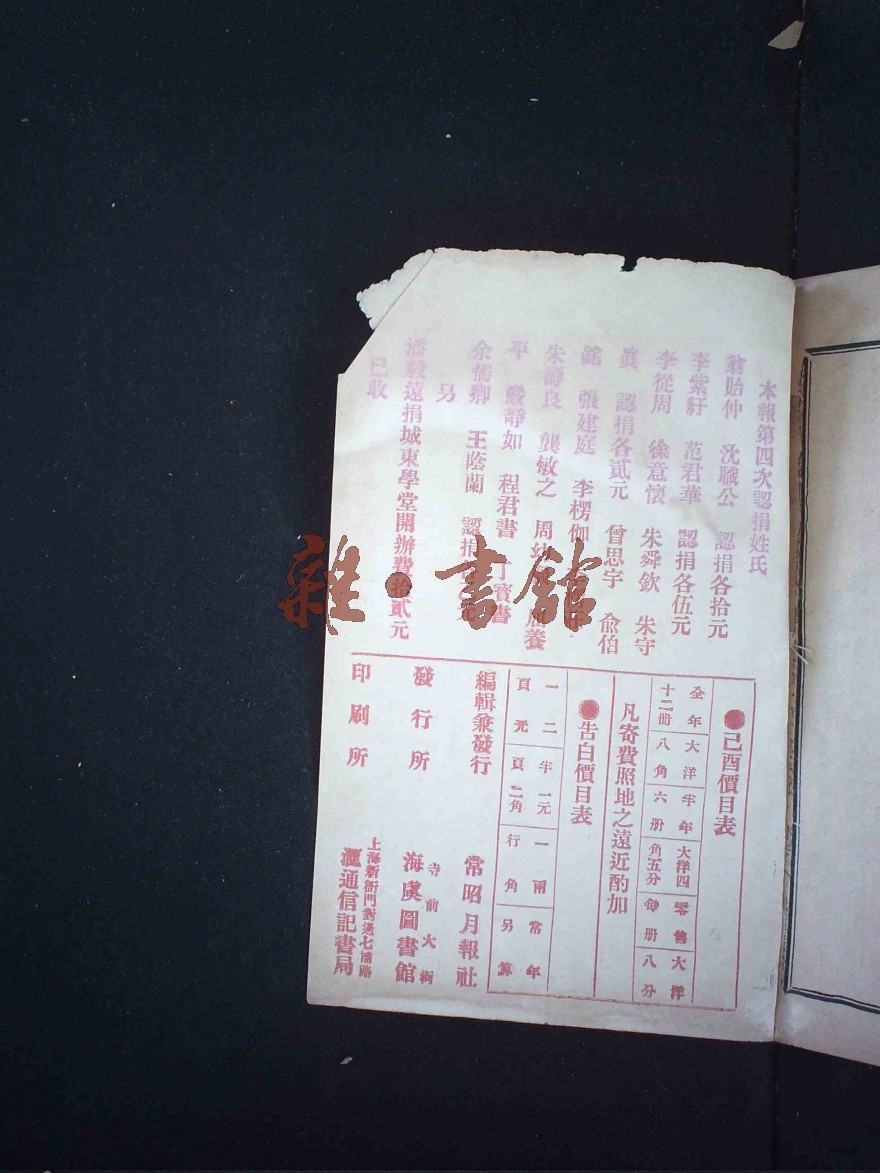 本報第四次認捐姓氏
翁貽仲 沈職公 認捐各拾元
李紫紆 范君華 認捐各伍元
李從周 徐意懷 朱舜欽 朱守
眞 認捐各貳元 曾思宇 兪伯
銘 張建庭 李楞伽
朱壽良 龔敏之 周 養
平 嚴靜如 程君書 丁寳書
余儒卿 王蔭蘭 認捐 元
另
潘毅遠捐城東學堂開辦費拾貳元
已收
己酉價目表
全年十二册 大洋八角
半年六册 大洋四角五分
零售每册 大洋八分
凡寄費照地之遠近酌加
告白價目表
一頁 二元
半頁 一元二角
一行 兩角
常年另算
編輯兼發行 常昭月報社
發行所 寺前大街 海虞圖書館
印刷所 上海新衙門對過七浦路 滙通信記書局
雜·書館